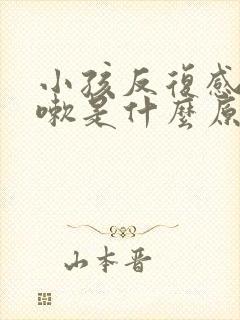 小孩反復感
嗽是什麼原
山本晋